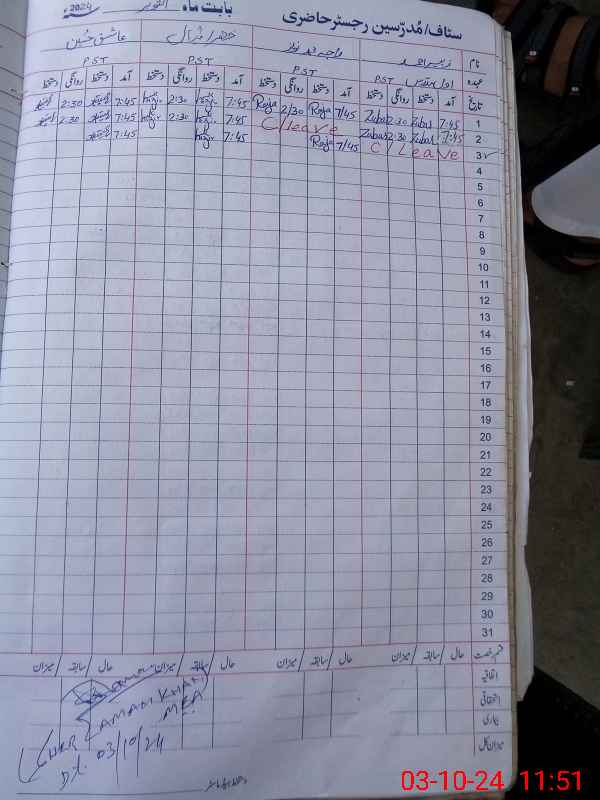 سٹاف/مُدرّسین رجسٹر حاضری بابت ماہ اکتوبر 2024ء
نام زبیر احمد عاشق حسین
عہدہ PST PST PST
تاریخ آمد دستخط روانگی دستخط آمد دستخط روانگی دستخط آمد دستخط روانگی دستخط آمد دستخط روانگی دستخط
1 7:45 Zubar 2:30 Zubar 7/45 Roja 2/30 Roja 7:45 2:30 7:45 2:30
2 7:45 Zubar 2:30 Zubar C/leave 7:45 2:30 7:45 2:30
3 C/Leave 7/45 Roja 7:45 7:45
4
5
6
7
8
9
10
11
12
13
14
15
16
17
18
19
20
21
22
23
24
25
26
27
28
29
30
31
قسم رخصت حال / سابقہ / میزان حال / سابقہ / میزان حال / سابقہ / میزان حال / سابقہ / میزان
اتفاقیہ
استحقاقی
بیماری
میزان کل
AMAN KHAN
MEA
Dt. 03/10/24
03-10-24 11:51